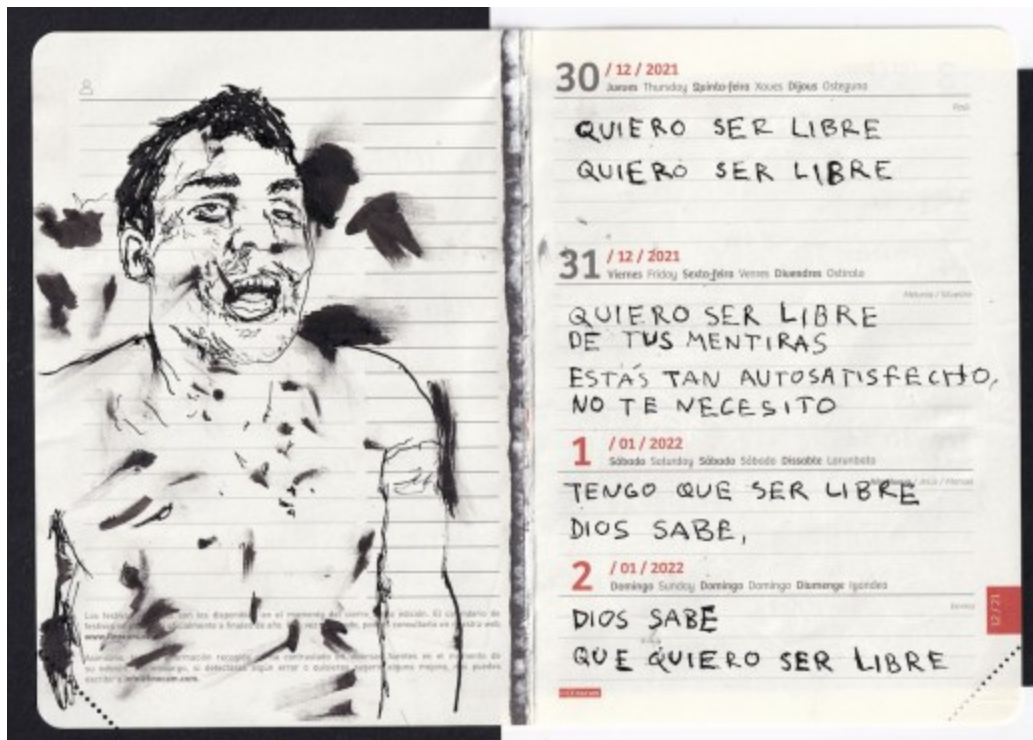 30 / 12 / 2021
Jueves Thursday Quinta-feira Xoves Dijous Osteguna
QUIERO SER LIBRE
QUIERO SER LIBRE
31 / 12 / 2021
Viernes Friday Sexta-feira Venres Divendres Ostirala
QUIERO SER LIBRE
DE TUS MENTIRAS
ESTÁS TAN AUTOSATISFECHO,
NO TE NECESITO
1 / 01 / 2022
Sábado Saturday Sábado Sábado Dissabte Larunbata
TENGO QUE SER LIBRE
DIOS SABE,
2 / 01 / 2022
Domingo Sunday Domingo Domingo Diumenge Igandea
DIOS SABE
QUE QUIERO SER LIBRE
12 / 21